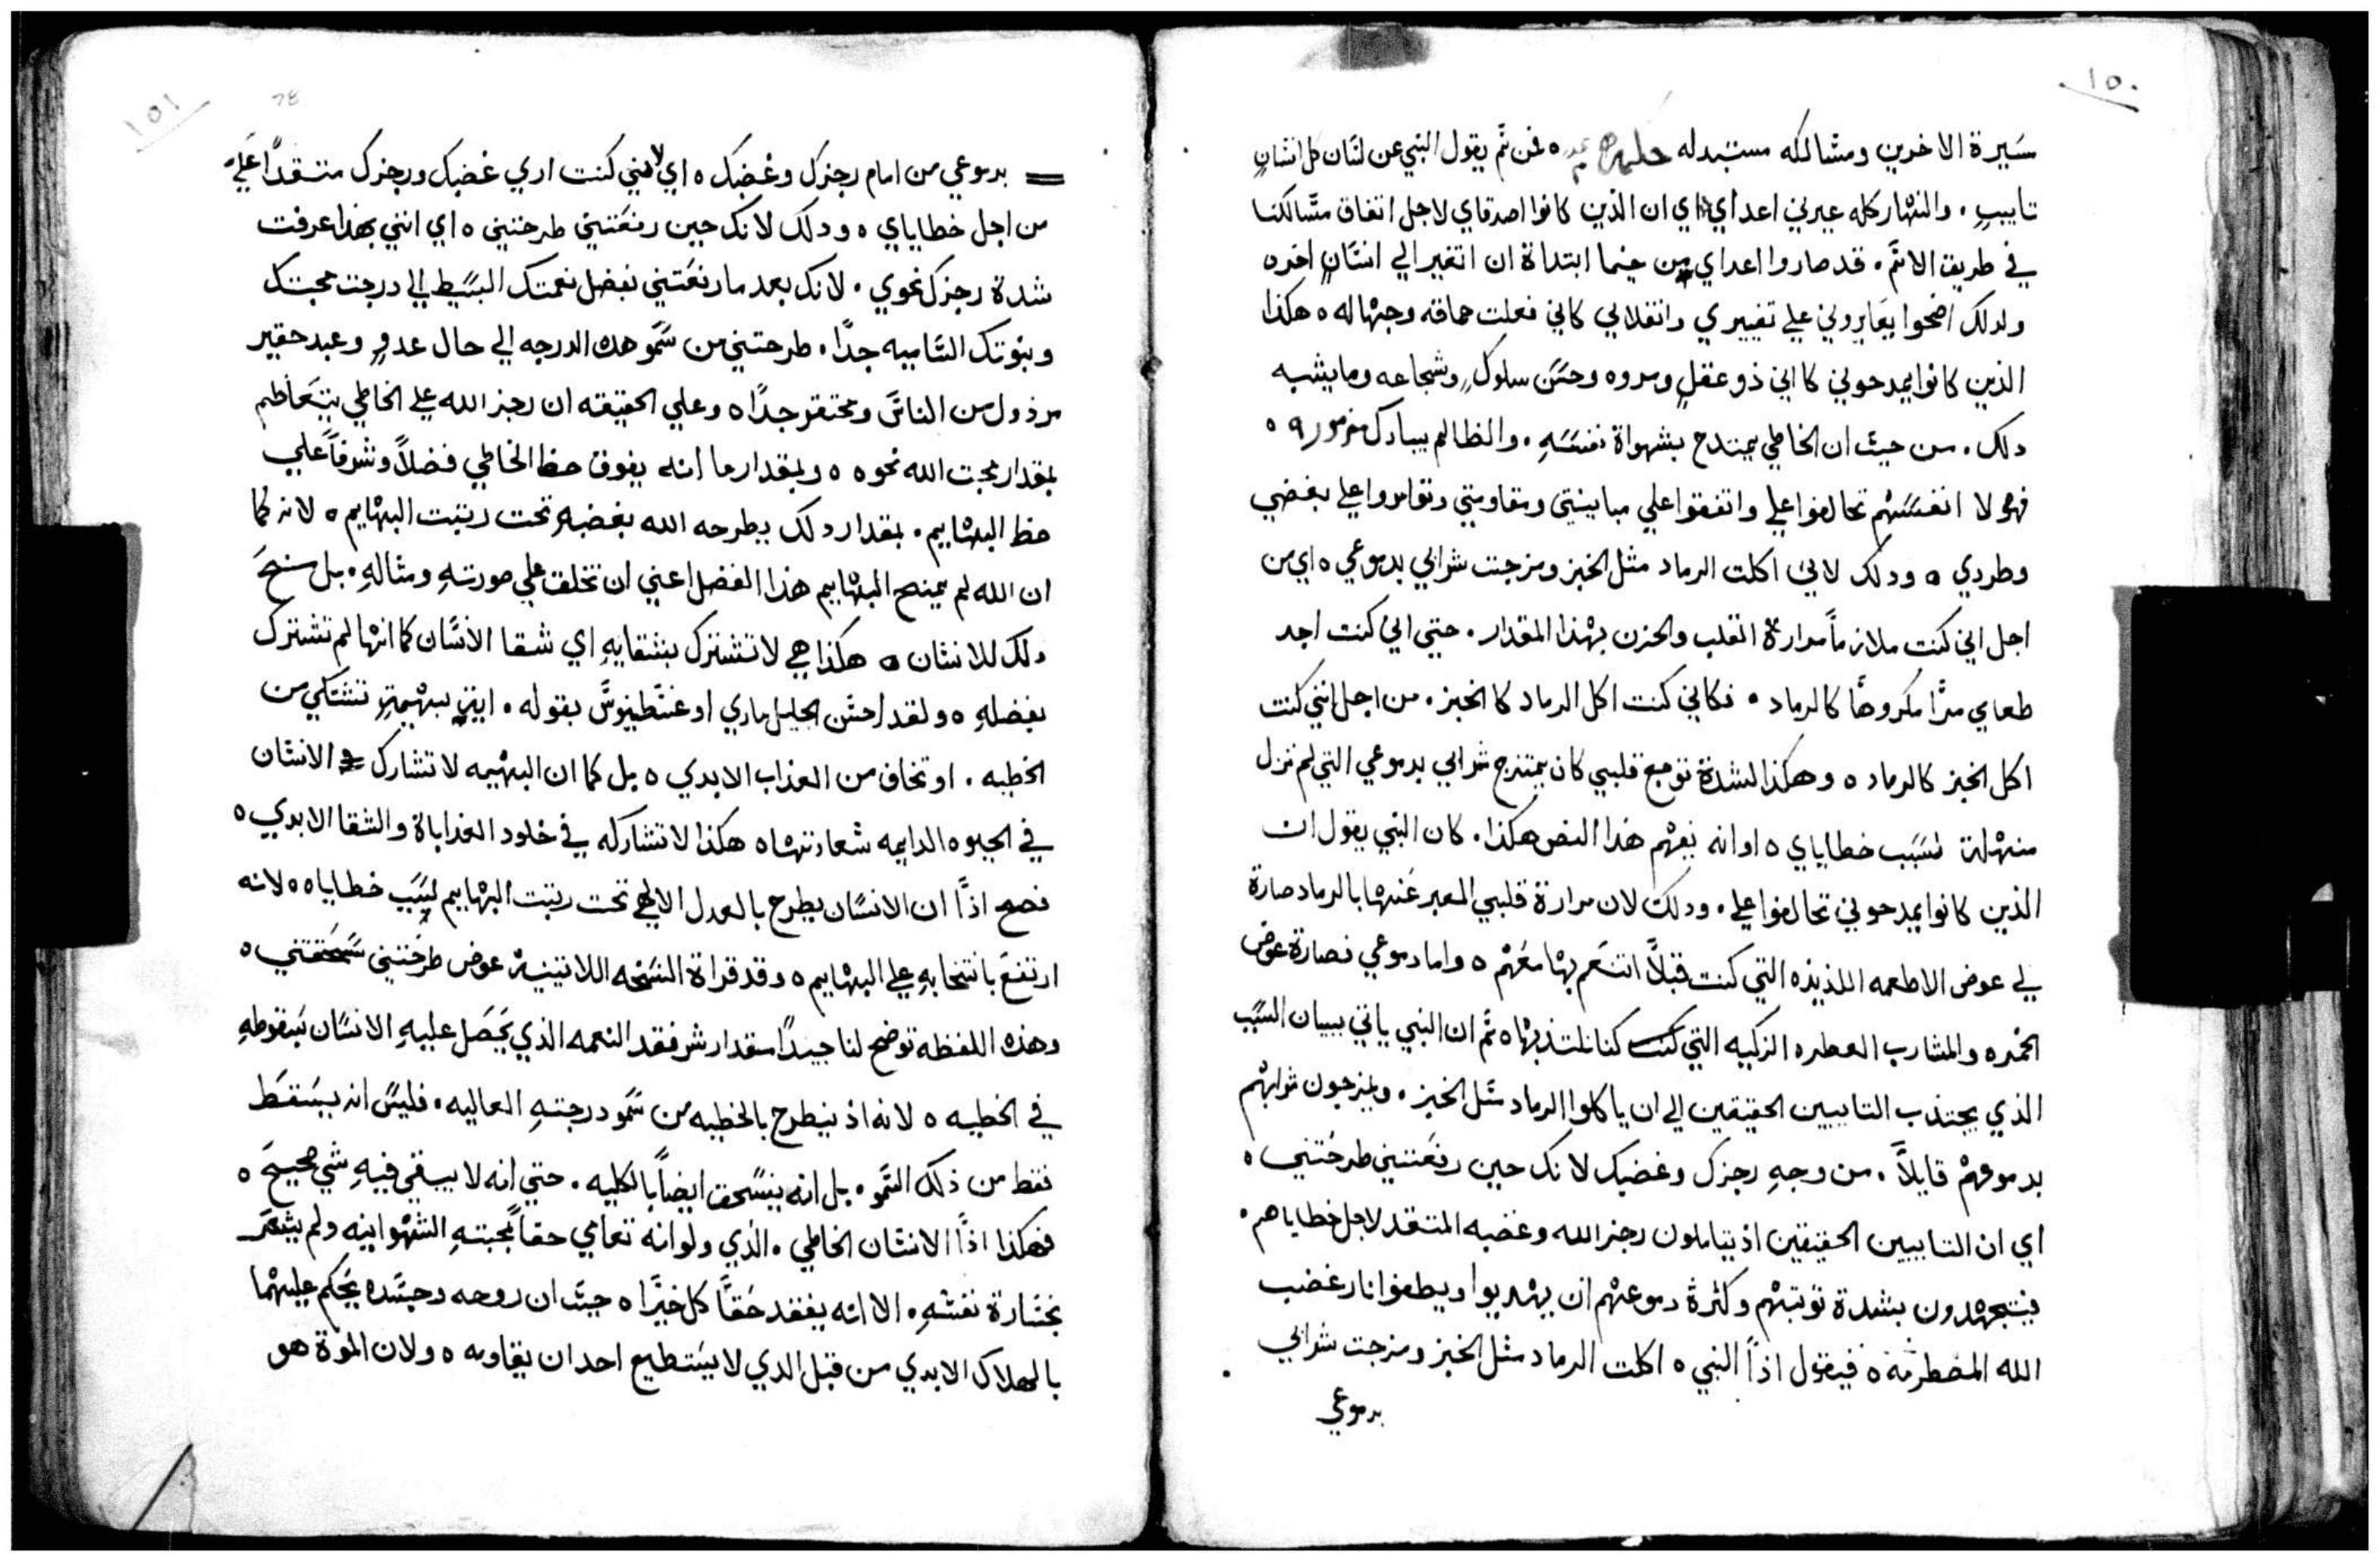 ١٥٠
سيرة الاخرين ومشالكه مستبدله فمن ثم يقول النبي عن لسان كل انسانٍ
تاييبٍ . والنهار كله عيرني اعداي اي ان الذين كانوا اصدقاي لاجل اتفاق مشالكنا
في طريق الاثم . قد صاروا اعداي من حينما ابتداة ان اتغير الي انسانٍ اخر ه
ولدلك اضحوا يعايروني علي تغييري وانقلابي كاني فعلت حماقه وجهاله ه هكذا
الذين كانوا يمدحوني كااني ذو عقلٍ ومروه وحسن سلوكٍ وشجاعه وما يشبه
دلك . من حيث ان الخاطي يمتدح بشهواة نفسهِ . والظالم يبارك مزمور ٩ ه
فهولا انفسهم تحالفوا علي واتفقوا علي مباينيتي ومقاومتي وتوامروا علي بغضي
وطردي ه ودلك لاني اكلت الرماد مثل الخبز ومزجت شرابي بدموعي ه اي من
اجل اني كنت ملازماً مرارة القلب والحزن بهذا المقدار . حتي اني كنت اجد
طعامي مرًا مكروهًا كالرماد . فكاني كنت اكل الرماد كالخبز . من اجل انني كنت
اكل الخبز كالرماد ه وهكذا لشدة توجع قلبي كان يمتزج شرابي بدموعي التي لم تزل
منهلة لسبب خطاياي ه او انه يفهم هذا النص هكذا . كان النبي يقول ان
الذين كانوا يمدحوني تحالفوا علي . ودلك لان مرارة قلبي المعبر عنها بالرماد صارة
لي عوض الاطعمه اللذيذه التي كنت قبلاً اتنعم بها معهم ه واما دموعي فصارة عوض
الخمره والمشارب العطره الزكيه التي كنا نلتذ بها ه ثم ان النبي ياتي ببيان السبب
الذي يجتذب التاييبين الحقيقين الي ان ياكلوا الرماد مثل الخبز . ويمزجون شرابهم
بدموعهم قايلاً . من وجهِ رجزك وغضبك لانك حين رفعتني طرحتني ه
اي ان التاييبين الحقيقين اذ يتاملون رجز الله وغضبه المتقد لاجل خطاياهم .
فيجتهدون بشدة توبتهم وكثرة دموعهم ان يهديوا ويطفوا نار غضب
الله المضطرمة ه فيقول اذاً النبي ه اكلت الرماد مثل الخبز ومزجت شرابي
بدموعي
١٥١
بدموعي من امام رجزك وغضبك ه اي لانني كنت اري غضبك ورجزك متقداً علي
من اجل خطاياي ه ودلك لانك حين رفعتني طرحتني ه اي انني بهذا عرفت
شدة رجزك نحوي . لانك بعد ما رفعتني بفضل نعمتك البسيط الي درجت محبتك
وبنوتك الساميه جدًا . طرحتني من سمو هده الدرجه الي حال عدوٍ وعبد حقير
مرذول من الناس ومحتقر جدًا ه وعلي الحقيقه ان رجز الله علي الخاطي يتعاظم
بمقدار محبت الله نحوه ه وبمقدار ما انه يفوق حظ الخاطي فضلاً وشرفاً علي
حظ البهاييم . بمقدار دلك يطرحه الله بغضبهِ تحت رتبت البهاييم ه لانه كما
ان الله لم يمنح البهاييم هذا الفضل اعني ان تخلق علي صورتهِ ومثالهِ . بل منح
دلك للانسان ه هكذا هي لا تشترك بشقايهِ اي شقا الانسان كما انها لم تشترك
بفضلهِ ه ولقد احسن الجليل ماري اوغسطينوس بقوله . اية بهيمةٍ تشتكي من
الخطيه . او تخاف من العذاب الابدي ه بل كما ان البهيمه لا تشارك الانسان
في الحيوه الدايمه سعادتها ه هكذا لا تشاركه في خلود العذاباة والشقا الابدي ه
فصح اذًا ان الانسان يطرح بالعدل الالهي تحت رتبت البهاييم لسبب خطاياه ه لانه
ارتفع بانتخابهِ علي البهاييم ه وقد قراة النسخه اللاتينية عوض طرحتني سحقتني ه
وهذه اللفظه توضح لنا جيداً مقدار شر فقد النعمه الذي يحصل عليهِ الانسان بسقوطهِ
في الخطيه ه لانه اذ ينطرح بالخطيه من سمو درجتهِ العاليه . فليس انه يسقط
فقط من ذلك السمو . بل انه ينسحق ايضاً بالكليه . حتي انه لا يبقي فيهِ شي صحيح ه
فهكذا اذاً الانسان الخاطي . الذي ولو انه تعامي حقاً بمحبتهِ الشهوانيه ولم يشعر
بخسارة نفسهِ . الا انه يفقد حقاً كل خيرًا ه حيث ان روحه وجسده يحكم عليهما
بالهلاك الابدي من قبل الدي لا يستطيع احد ان يقاومه ه ولان الموة هو